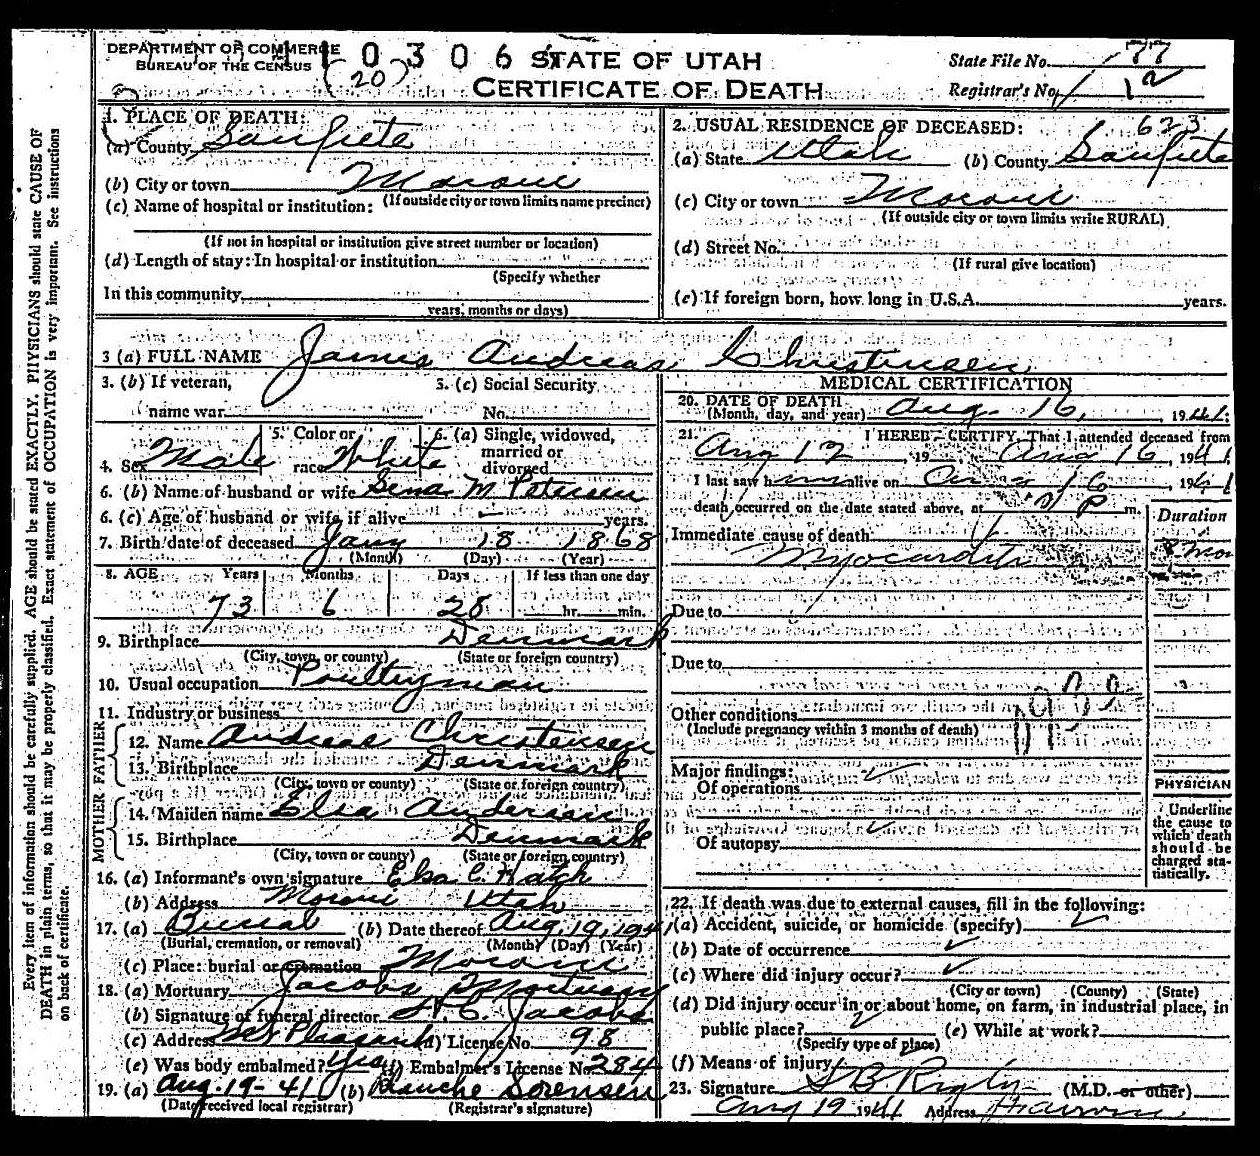 DEPARTMENT OF COMMERCE
BUREAU OF THE CENSUS
0306
(20)
STATE OF UTAH
CERTIFICATE OF DEATH
State File No. 77
Registrar's No. 12
1. PLACE OF DEATH:
(a) County Sanpete
(b) City or town Moroni
(If outside city or town limits name precinct)
(c) Name of hospital or institution:
(If not in hospital or institution give street number or location)
(d) Length of stay: In hospital or institution
(Specify whether
In this community
years, months or days)
2. USUAL RESIDENCE OF DECEASED: 623
(a) State Utah (b) County Sanpete
(c) City or town Moroni
(If outside city or town limits write RURAL)
(d) Street No.
(If rural give location)
(e) If foreign born, how long in U.S.A. years.
3 (a) FULL NAME James Andreas Christensen
3. (b) If veteran,
name war
3. (c) Social Security
No.
4. Sex Male
5. Color or
race White
6. (a) Single, widowed,
married or
divorced
6. (b) Name of husband or wife Sena M Petersen
6. (c) Age of husband or wife if alive years.
7. Birth date of deceased Jany 18 1868
(Month) (Day) (Year)
8. AGE Years Months Days If less than one day
73 6 28 hr. min.
9. Birthplace Denmark
(City, town, or county) (State or foreign country)
10. Usual occupation Poultryman
11. Industry or business
FATHER
12. Name Andreas Christensen
13. Birthplace Denmark
(City, town or county) (State or foreign country)
MOTHER
14. Maiden name Elsa Anderson
15. Birthplace Denmark
(City, town or county) (State or foreign country)
16. (a) Informant's own signature Elsa C. Hatch
(b) Address Moroni Utah
17. (a) Burial (b) Date thereof Aug. 19, 1941
(Burial, cremation, or removal) (Month) (Day) (Year)
(c) Place: burial or cremation Moroni
18. (a) Mortuary Jacobs Mortuary
(b) Signature of funeral director Jacobs
(c) Address Mt Pleasant (d) License No. 98
(e) Was body embalmed? Yes (f) Embalmer's License No. 284
19. (a) Aug. 19-41 (b) Blanche Sorensen
(Date received local registrar) (Registrar's signature)
MEDICAL CERTIFICATION
20. DATE OF DEATH
(Month, day, and year) Aug. 16, 1941.
21. I HEREBY CERTIFY, That I attended deceased from
Aug 12 19 Aug 16, 1941
I last saw him alive on Aug 16, 1941
death occurred on the date stated above, at P m.
Duration
Immediate cause of death
Myocarditis 8 mon
Due to
Due to
Other conditions
(Include pregnancy within 3 months of death)
Major findings:
Of operations
Of autopsy
PHYSICIAN
Underline
the cause to
which death
should be
charged sta-
tistically.
22. If death was due to external causes, fill in the following:
(a) Accident, suicide, or homicide (specify)
(b) Date of occurrence
(c) Where did injury occur?
(City or town) (County) (State)
(d) Did injury occur in or about home, on farm, in industrial place, in
public place? (e) While at work?
(Specify type of place)
(f) Means of injury
23. Signature (M.D. or other)
Aug 19 1941 Address
Every item of information should be carefully supplied. AGE should be stated EXACTLY. PHYSICIANS should state CAUSE OF
DEATH in plain terms, so that it may be properly classified. Exact statement of OCCUPATION is very important. See instructions
on back of certificate.